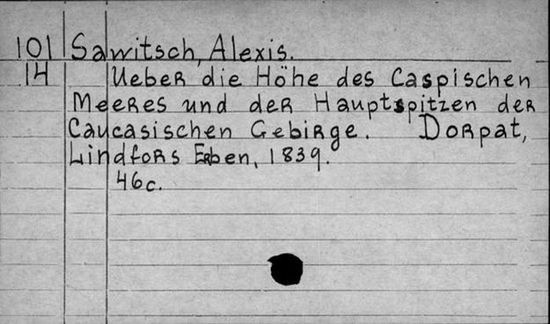 101 Sawitsch, Alexis.
14 Ueber die Höhe des Caspischen
Meeres und der Hauptspitzen der
Caucasischen Gebirge. Dorpat,
Lindfors Erben, 1839.
46c.